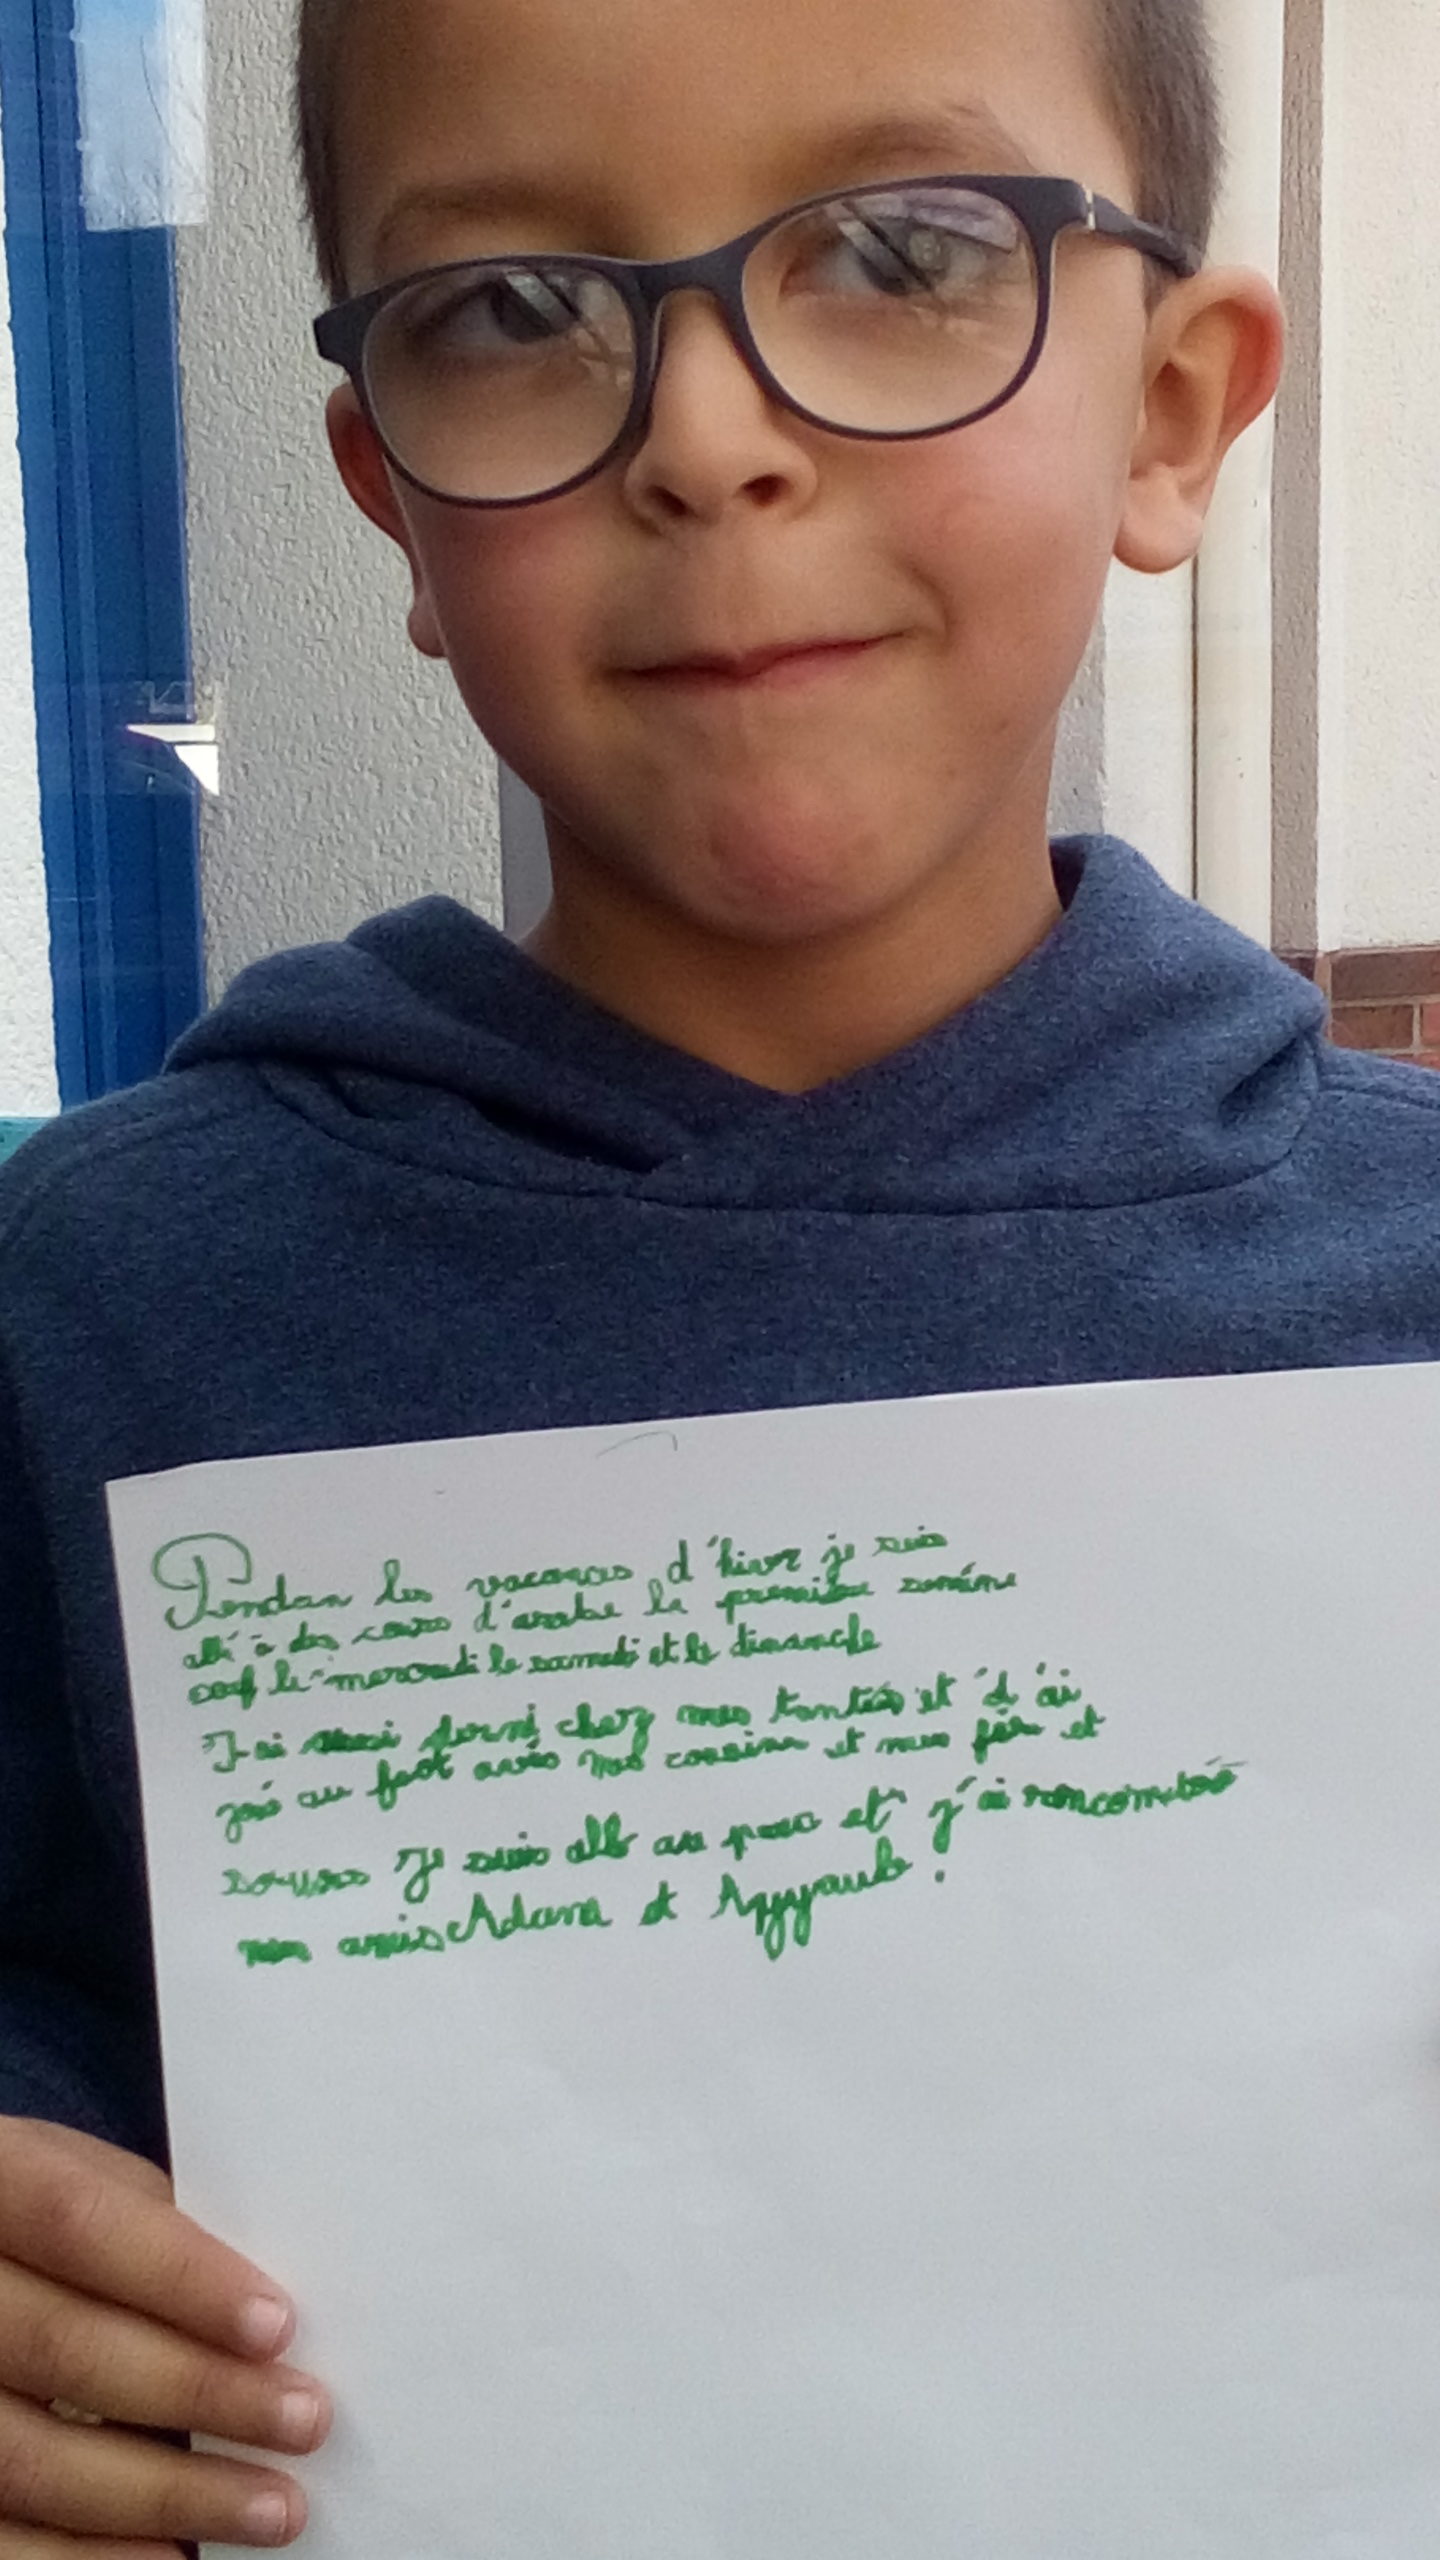 Pendan les vacances d'hiver je suis
allé à des cours d'arabe la première semaine
sauf le mercredi le samedi et le dimanche
J-ai dormi chez mes tantes et d'ai
joué au foot avec mes cousins et mes et
soeurs Je suis allé au parc et j'ai
mes amis Adam et Ayyoub.